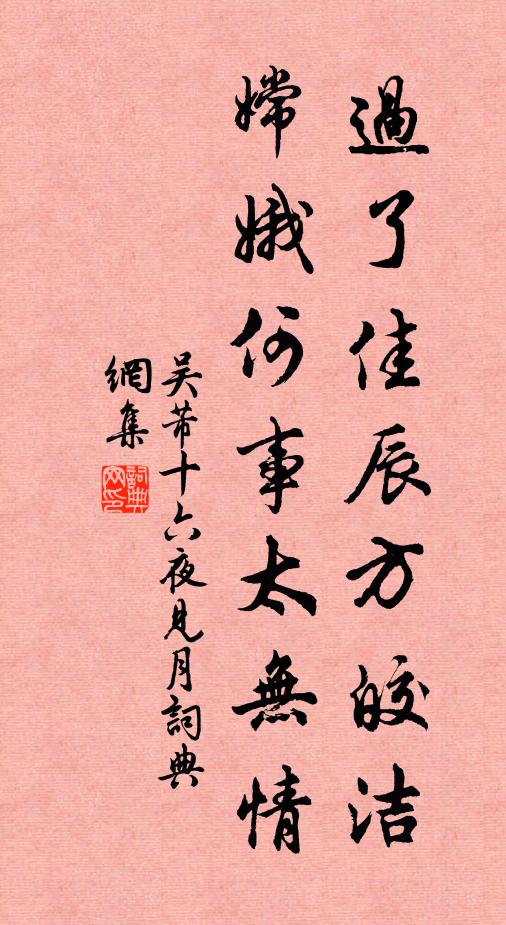 過了佳辰方皎洁
嫦娥何事太無情
吴芾十六夜見月詞典
網集
詞典網印